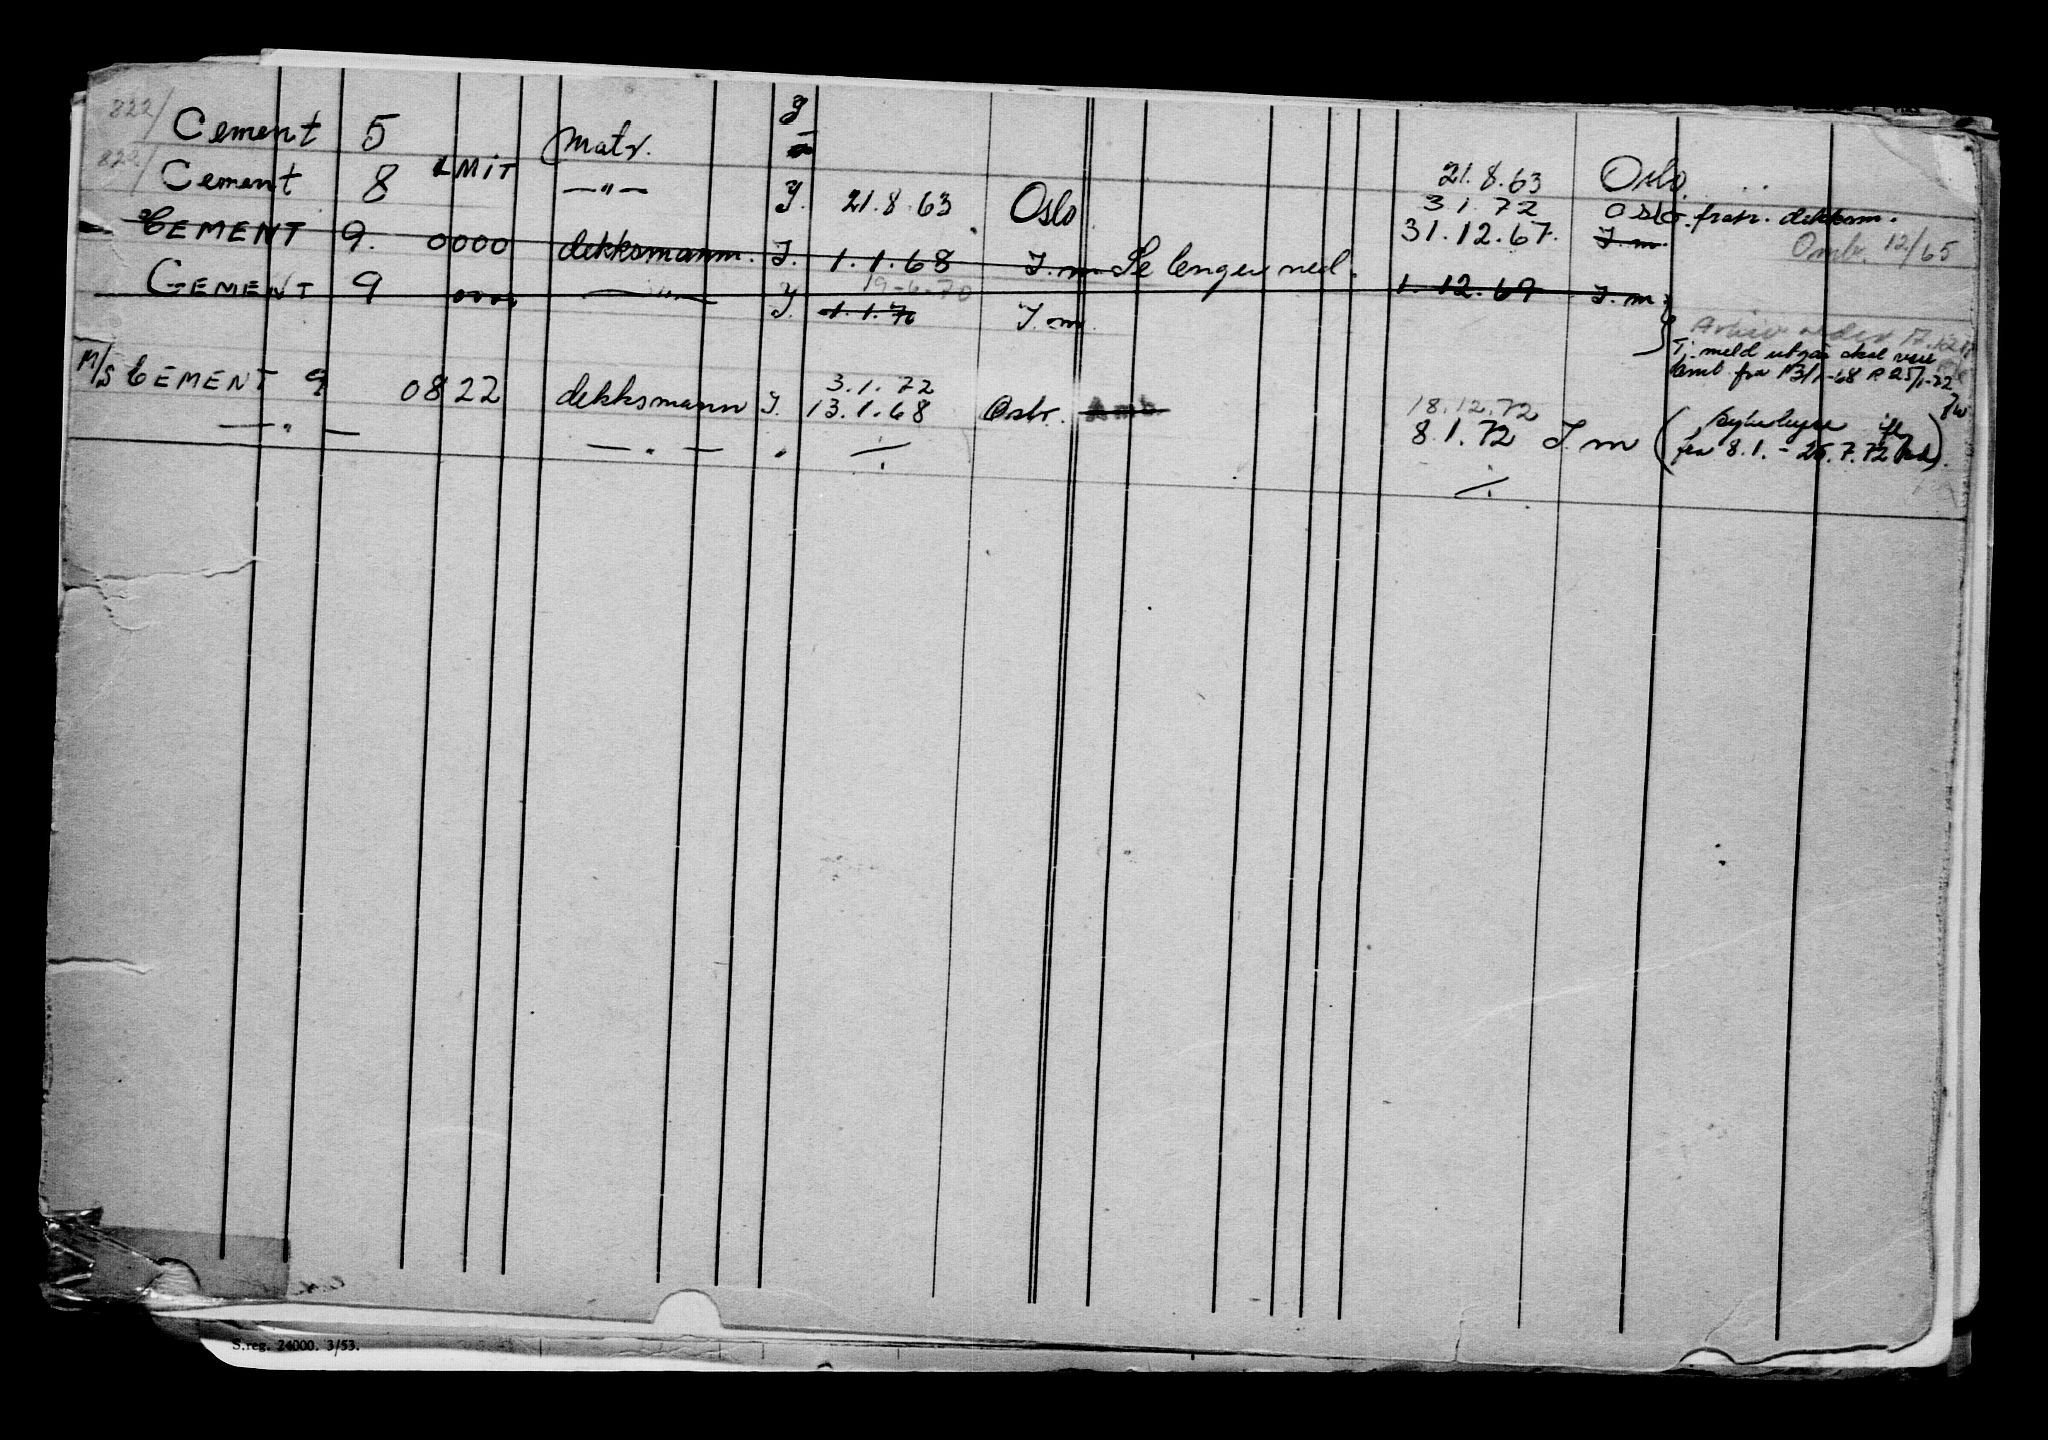 822/ Cement 5 Matr. 21.8.63 Oslo
822/ Cement 8 LMIT —"— J. 21.8.63 Oslo 3 1. 72 Oslo. fratr. dekksm.
CEMENT 9. 0000 dekksmann. J. 1.1.68 J.m. Se lenger ned. 31.12.67. J.m. Omb. 12/65
CEMENT 9 0000 —"— J. 19-6-70 1.1.70 J.m. 1.12.69 J.m.
Tj. meld utgår skal være
Omb fra 13/1-68 P 25/1-72
M/S CEMENT 9 0822 dekksmann J. 3.1.72 18.12.72
13.1.68 Oslo. Omb. 8.1.72 J.m (sykehyre
—"— —"— " ÷ ÷ fra 8.1. - 25.7.72
S.reg. 24000. 3/53.